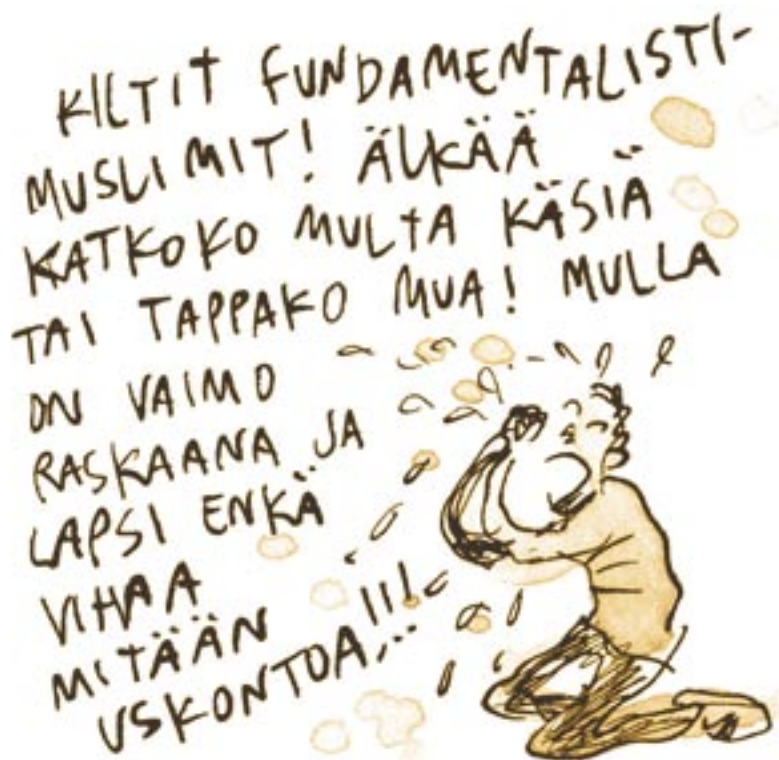 KILTIT FUNDAMENTALISTI-
MUSLIMIT! ÄLKÄÄ
KATKOKO MULTA KÄSIÄ
TAI TAPPAKO MUA! MULLA
ON VAIMO
RASKAANA JA
LAPSI ENKÄ
VIHAA
MITÄÄN
USKONTOA,..!!!